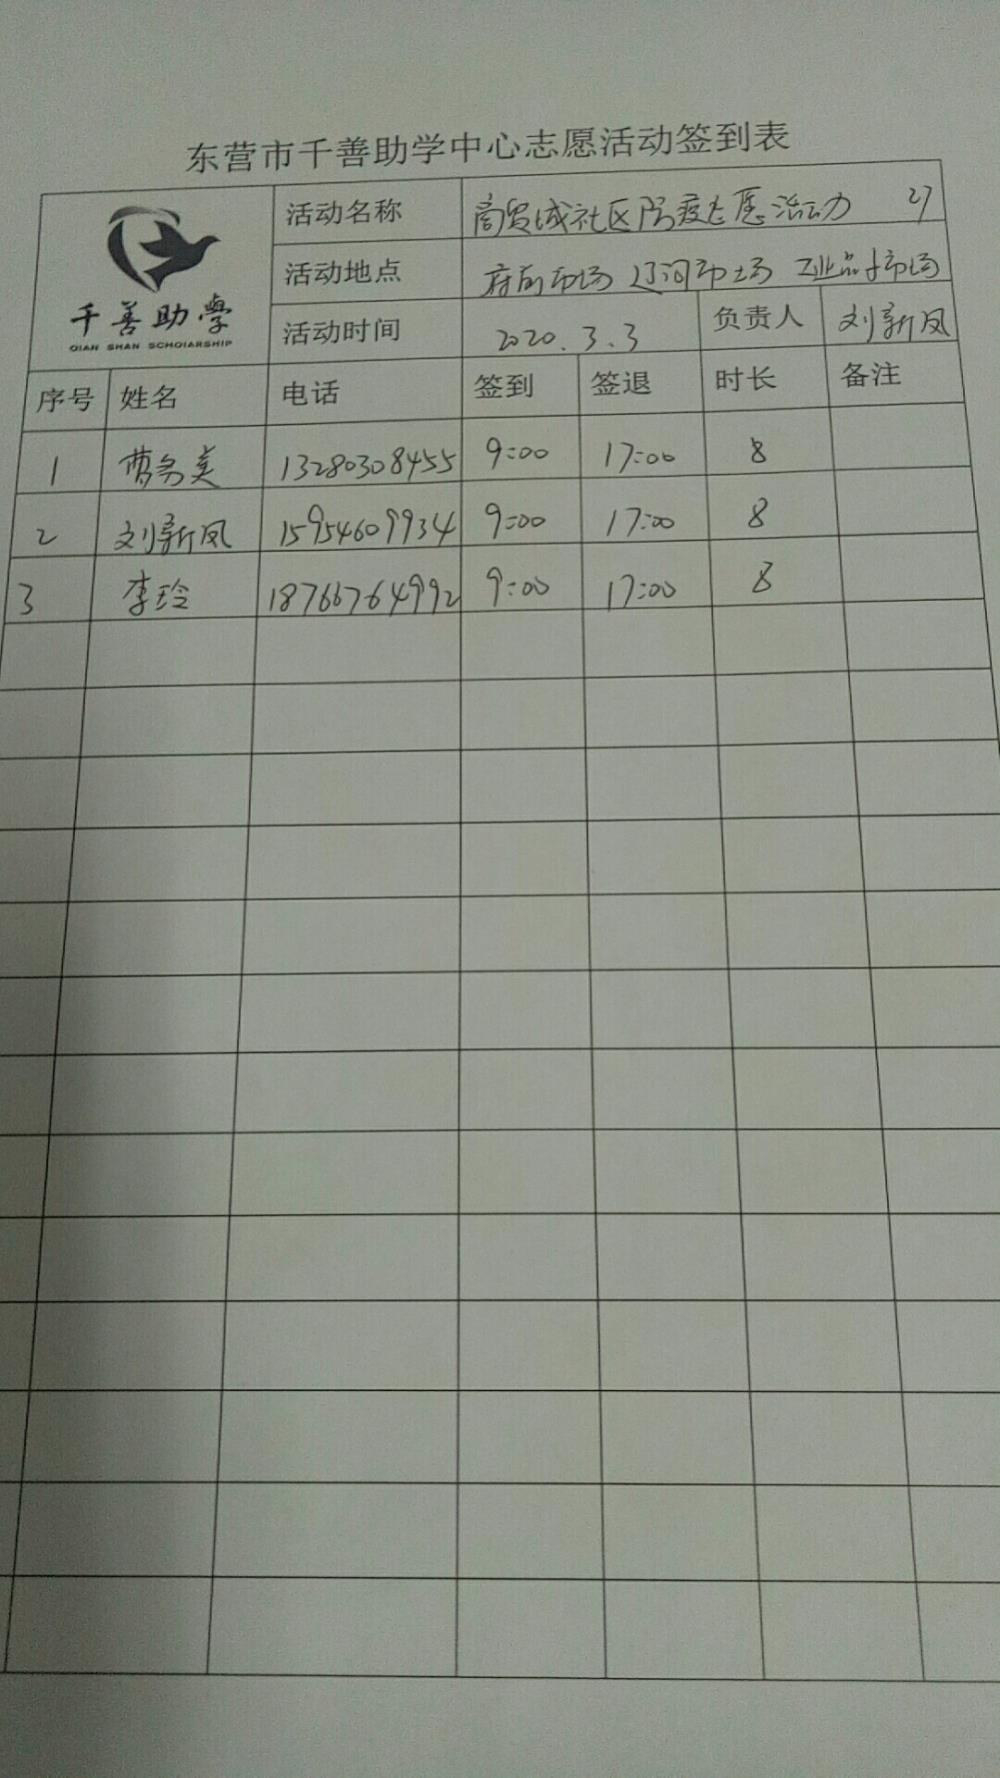 东营市千善助学中心志愿活动签到表
千善助學
QIAN SHAN SCHOIARSHIP
活动名称 商贸城社区防疫志愿活动 27
活动地点 府前市场 辽河市场 工业品市场
活动时间 2020.3.3 负责人 刘新凤
序号 姓名 电话 签到 签退 时长 备注
1 曹务美 13280308455 9:00 17:00 8
2 刘新凤 15954609934 9:00 17:00 8
3 李玲 18766764992 9:00 17:00 8